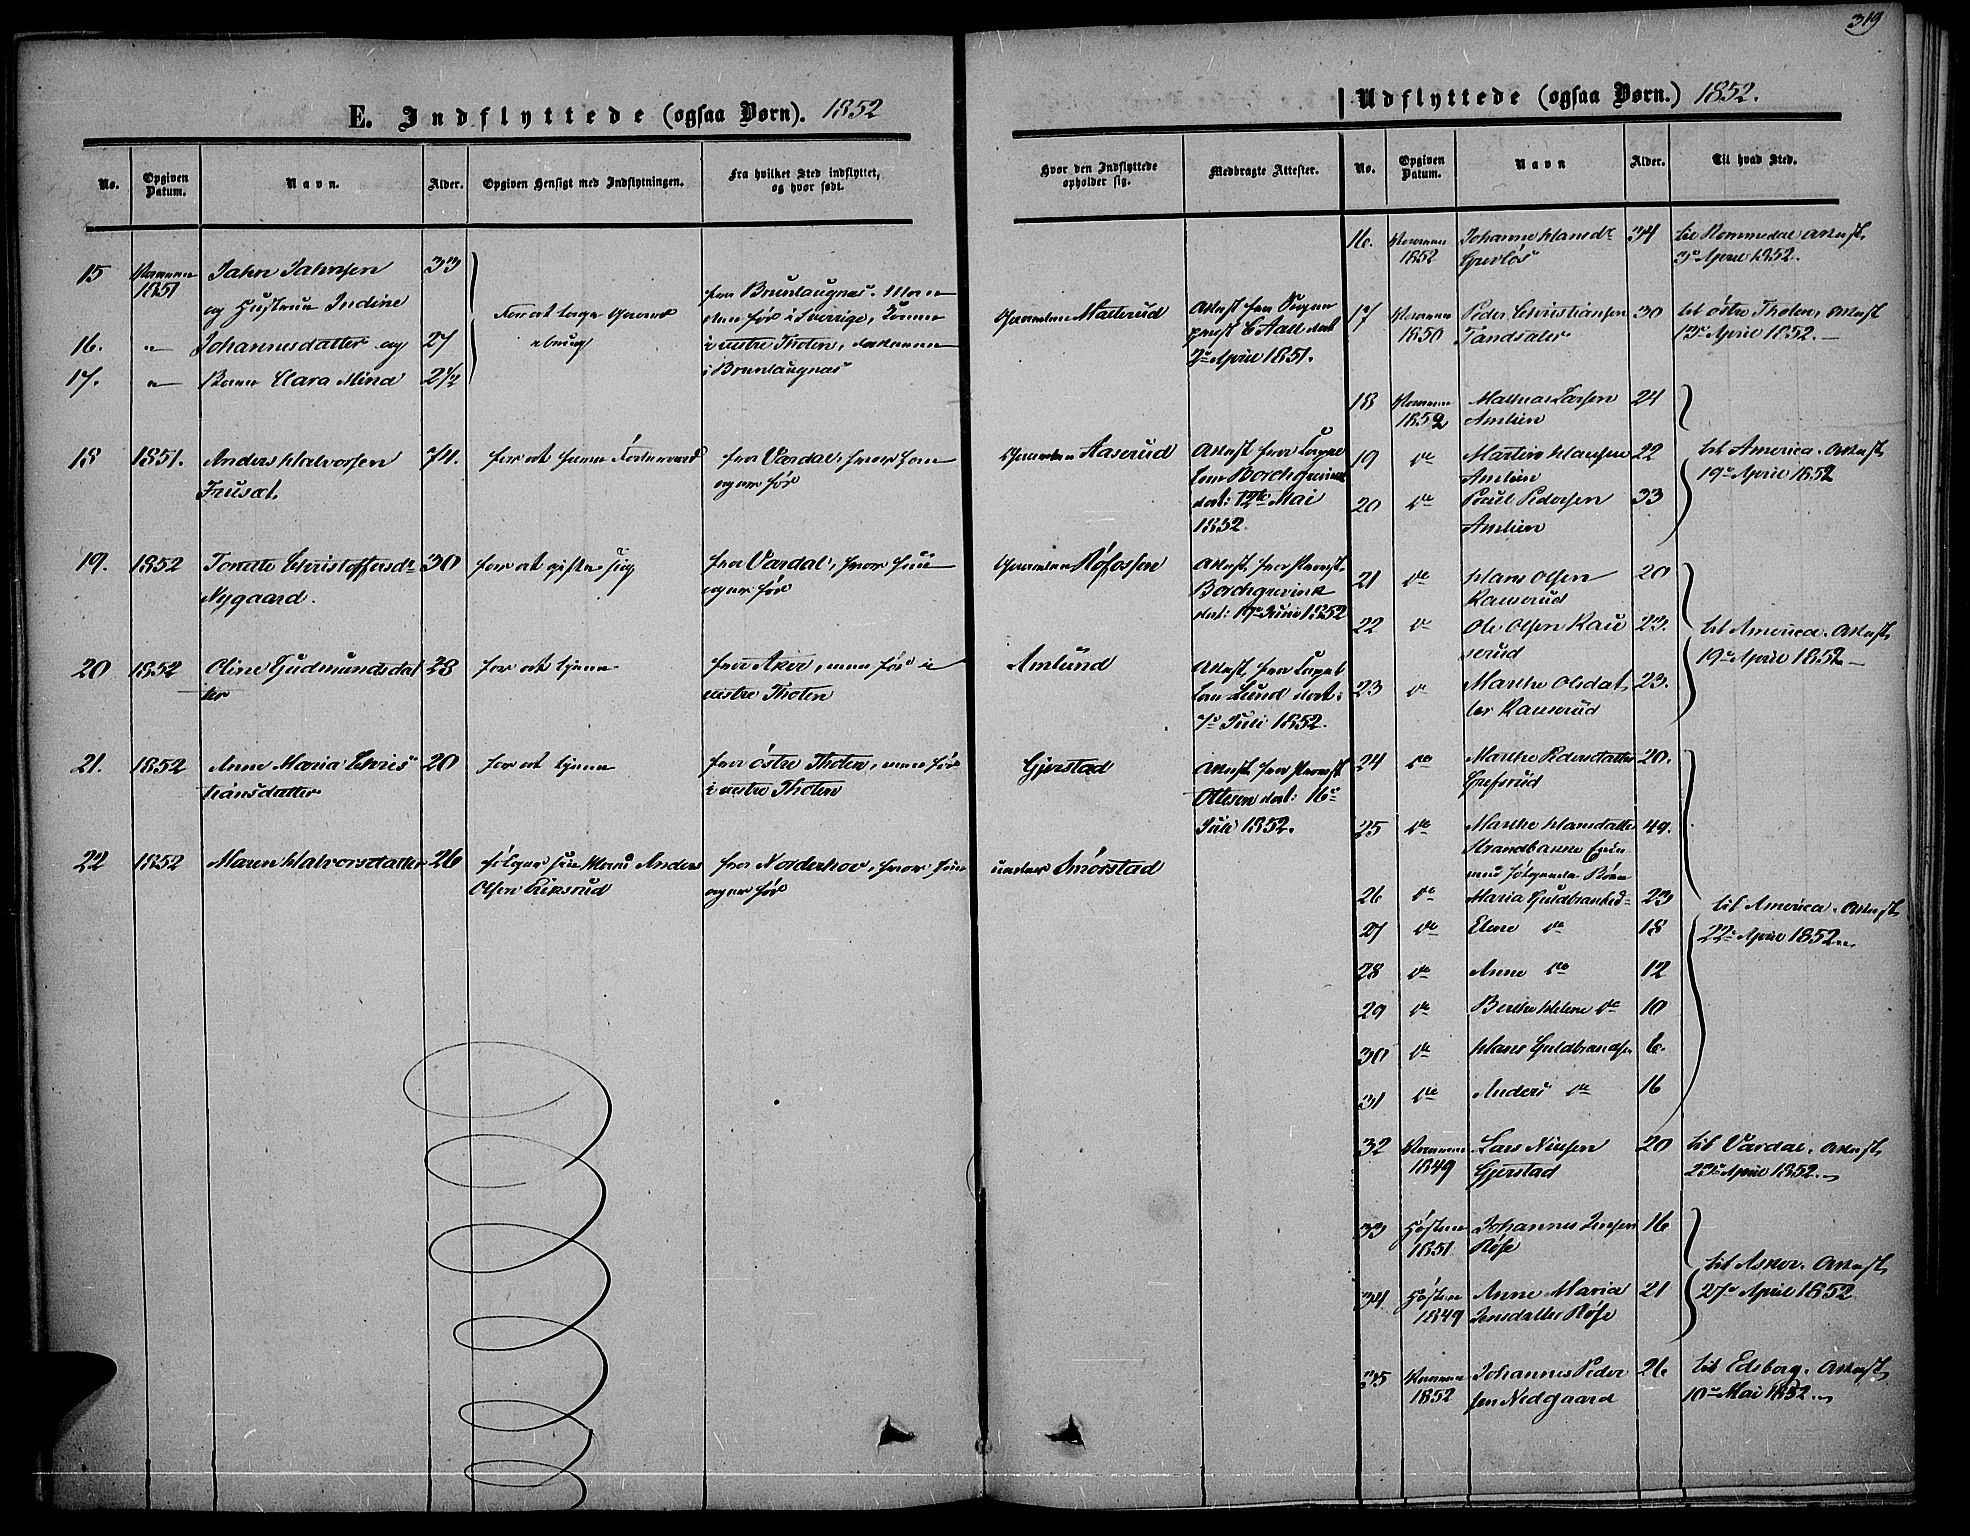 319
E. Indflyttede (ogsaa Børn). 1852
No.
Opgiven Datum.
Navn.
Alder.
Opgiven Hensigt med Indflytningen.
Fra hvilket Sted indflyttet, og hvor født.
Hvor den Indflyttede opholder sig.
Medbragte Attester.
15 1851 Jahn Jahnsen 33
og Hustrue Indine
16. " Johannesdatter og 27
17. " Barn Clara Mina 2 1/2
for at tage Gaard
fra Brunlaugnæs. Man
den før i Sverrige, Konen
i vestre Thoten, datteren
i Brunlaugnæs
Gaarden Mæterud
Attest fra Sogne
prest C Hall dat
2 April 1851.
18 1851. Anders Halvorsen 74. for at fra Vardal, hvor han
Frusæt. ogsaa før
Gaarden Aaserud
Attest fra Capel
lan Borchgrevink
dat: 12te Mai
1852.
19. 1852 Torette Christoffersd 30 for at gifte sig fra Vardal, hvor hun
Nygaard. ogsaa før
Gaarden Røfossen
Attest fra Provst
Borchgrevink
dat: 17 Juni 1852
20 1852 Oline Gudmundsdat 28 for at tjene fra Aker, men før i
ter vestre Thoten
Amlund
Attest fra Capel
lan Lund dat:
7 Juli 1852.
21. 1852 Anne Maria Chris 20 for at tjene fra østre Thoten, men før
tiansdatter i vestre Thoten
Gjerstad
Attest fra Provst
Ottesen dat: 16
Juli 1852.
22 1852 Maren Halvorsdatter 26 følger sin Mand Anders fra Norderhov, hvor hun
Olsen Eriksrud ogsaa før
under Smørstad
Udflyttede (ogsaa Børn.) 1852.
No.
Opgiven Datum.
Navn
Alder.
Til hvad Sted.
16. 1852 Johanne Hansd 34 til Rommedal Attest
Grevløs 3 April 1852.
17 1850 Peder Christiansen 30 til østre Thoten, Attest
Tandsæter 13 April 1852.
18 1852 Mathias Larsen 24
Amlien
19 do Martin Hansen 22 til America. Attest
Amlien 19 April 1852
20 do Poul Pedersen 33
Amlien
21 do Hans Olsen 20
Rauserud
22 do Ole Olsen Rau 23. til America. Attest
serud 19 April 1852
23 do Marthe Olsdat 23.
ter Rauserud
24 do Marthe Pedersdatter 20.
Grefsrud
25 do Marthe Hansdatter 49.
Strandbakke
med følgende Børn
26 do Maria Guldbrandsd 23 til America. Attest
27 do Elene do 18 22 April 1852
28 do Anne do 12
29 do Berthe Helene do 10
30 do Hans Guldbrandsen 6.
31 do Anders do 16
32 1849 Lars Nielsen 20 til Vardal. Attest
Gjerstad 23 April 1852.
33 Høsten Johannes Jensen 16
1851 Røse
til Asker. Attest
34 Høsten Anne Maria 21 27 April 1852
1849 Jensdatter Røse
35 1852 Johannes Peder 26 til Edsberg. Attest
sen Nedgaard 10 Mai 1852.